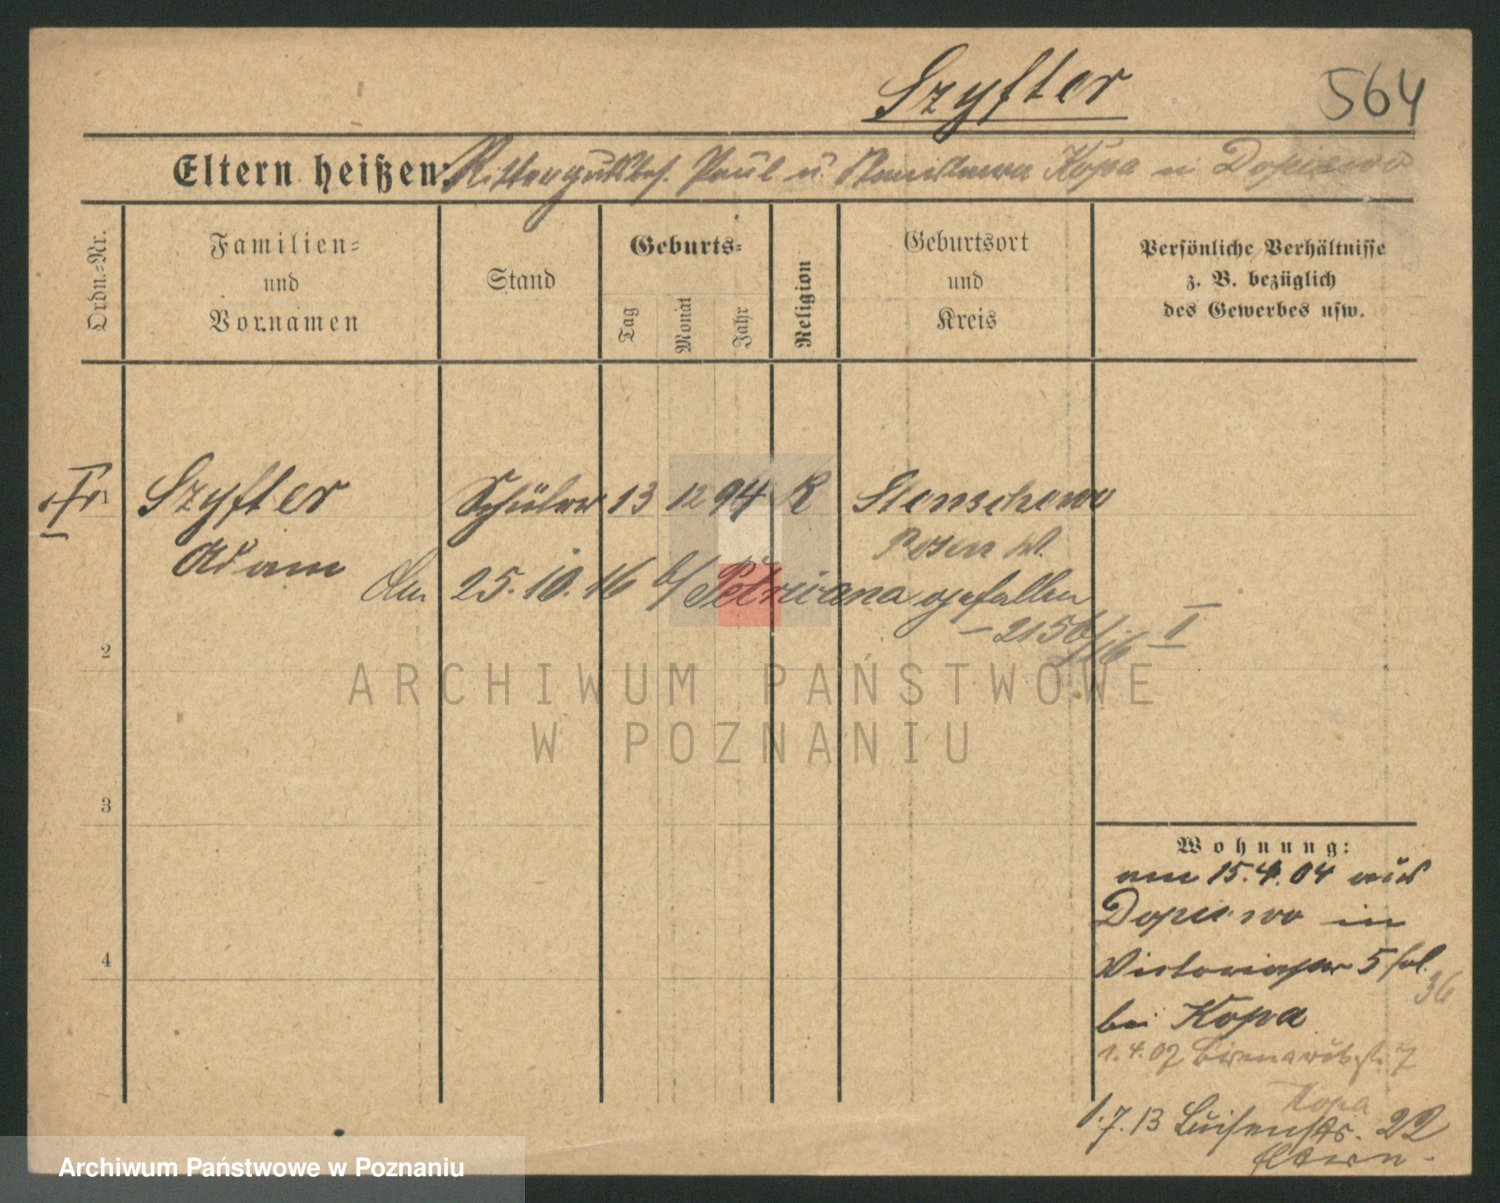 Szyfter
564
Eltern heißen: Rittergutsbes. Paul u. Stanislawa Kopa in Dopiewo
Ordn.-Nr.
Familien-
und
Vornamen
Stand
Geburts-
Tag
Monat
Jahr
Religion
Geburtsort
und
Kreis
Persönliche Verhältnisse
z. B. bezüglich
des Gewerbes usw.
Szyfter Schüler 13 12 94 K Stenschewo
Adam
Posen W.
Am 25.10.16 b/ gefallen
2156/16 I
2
3
4
Wohnung:
am 15.4.04 aus
Dopiewo in
Victoriastr 5
36
bei Kopa
1.4.07 7
Kopa
1.7.13 Luisenstr. 22
Eltern.
ARCHIWUM PAŃSTWOWE
W POZNANIU
Archiwum Państwowe w Poznaniu